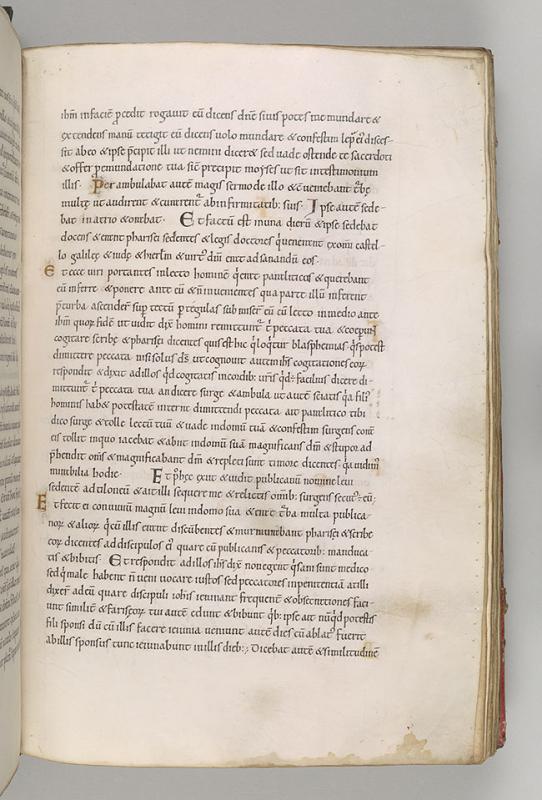 ihm infaciē p̄cedit rogavit eū dicens dn̄e sivis potes me mundare &
extendens manū tetigit eū dicens volo mundare & confestim lep̄ ei disces-
sit ab eo & ipse p̄cipit illi ut nemini dicer& sed vade ostende te sacerdoti
& offer p emundatione tua sic̄ precipit moyses ut sit intestimonium
illis. Per ambulabat autē magis sermo de illo & c̄veniebant t̄be
multę ut audirent & curarent̄ ab infirmitatib: suis. Ipse autē sede-
bat in &orabat. Et factū est inuna dierū & ipse sedebat
docens & erant pharisei sedentes & legis doctores q̄ venerant exomni castel-
lo galileę & iudę & hierl̄m & virt᷒ dn̄i erat ad sanandū eos.
Et ecce viri portantes inlecto hominē q̄ erat paraliticus & querebant
eū inferre & ponere ante eū & n̄ invenientes qua parte illū inferrent
p̄turba ascender̄ sup tectū p̄ regulas submiser̄ eū cū lecto inmedio ante
ihm quoꝝ fidē ut vidit dix̄ homini remittunt̄ t̄ peccata tua & coeper̄
cogitare scribę & pharisei dicentes quis est hic q̄ loqtur blasphemias q̄s potest
dimittere peccata nisi solus ds̄ ut cognovit autē ihs̄ cogitationes eoꝝ
respondit & dixit ad illos q̄d cogitatis incordib: vr̄is q̄d ē facilius dicere di-
mittunt̄ t̄ peccata tua an dicere surge & ambula ut autē sciatis q̄a fili᷒
hominis hab& potestatē interra dimittendi peccata ait paralitico tibi
dico surge & tolle lectū tuū & vade indomū tuā & confestim surgens corā
eis tollit inquo iacebat & abiit indomū suā magnificans dm̄ & stupor ad
p̄hendit om̄s & magnificabant dm̄ & repleti sunt timore dicentes. q̄a vidim᷒
mirabilia hodie. Et p̄hęc exiit & vidit publicanū nomine levi
sedentē ad teloneū & ait illi sequere me & relictis omīb: surgens secut᷒ ē eū;
Et fecit ei convivium magnū levi indomo sua & erat t̄ba multa publica-
noꝝ & alioꝝ q̄ cū illis erant discūbentes & murmurabant pharisei & scribę
eoꝝ dicentes ad discipulos ei᷒ quare cū publicanis & peccatorib: manduca-
tis & bibitis. Et respondit ad illos ihs̄ dix̄ non egent q̄ sani sunt medico
sed q̄ male habent n̄ veni vocare iustos sed peccatores inpenitentiā at illi
dixer̄ ad eū quare discipuli iohīs ieiunant frequent̄ & obsecrationes faci-
unt similit̄ & fariseoꝝ tui autē edunt & bibunt q̄b: ipse ait nūq̄d potestis
filii sponsi dū cū illis facere ieiunia venient autē dies cū ablat᷒ fuerit
ab illis sponsus tunc ieiunabunt inillis dieb:; Dicebat autē & similitudinē